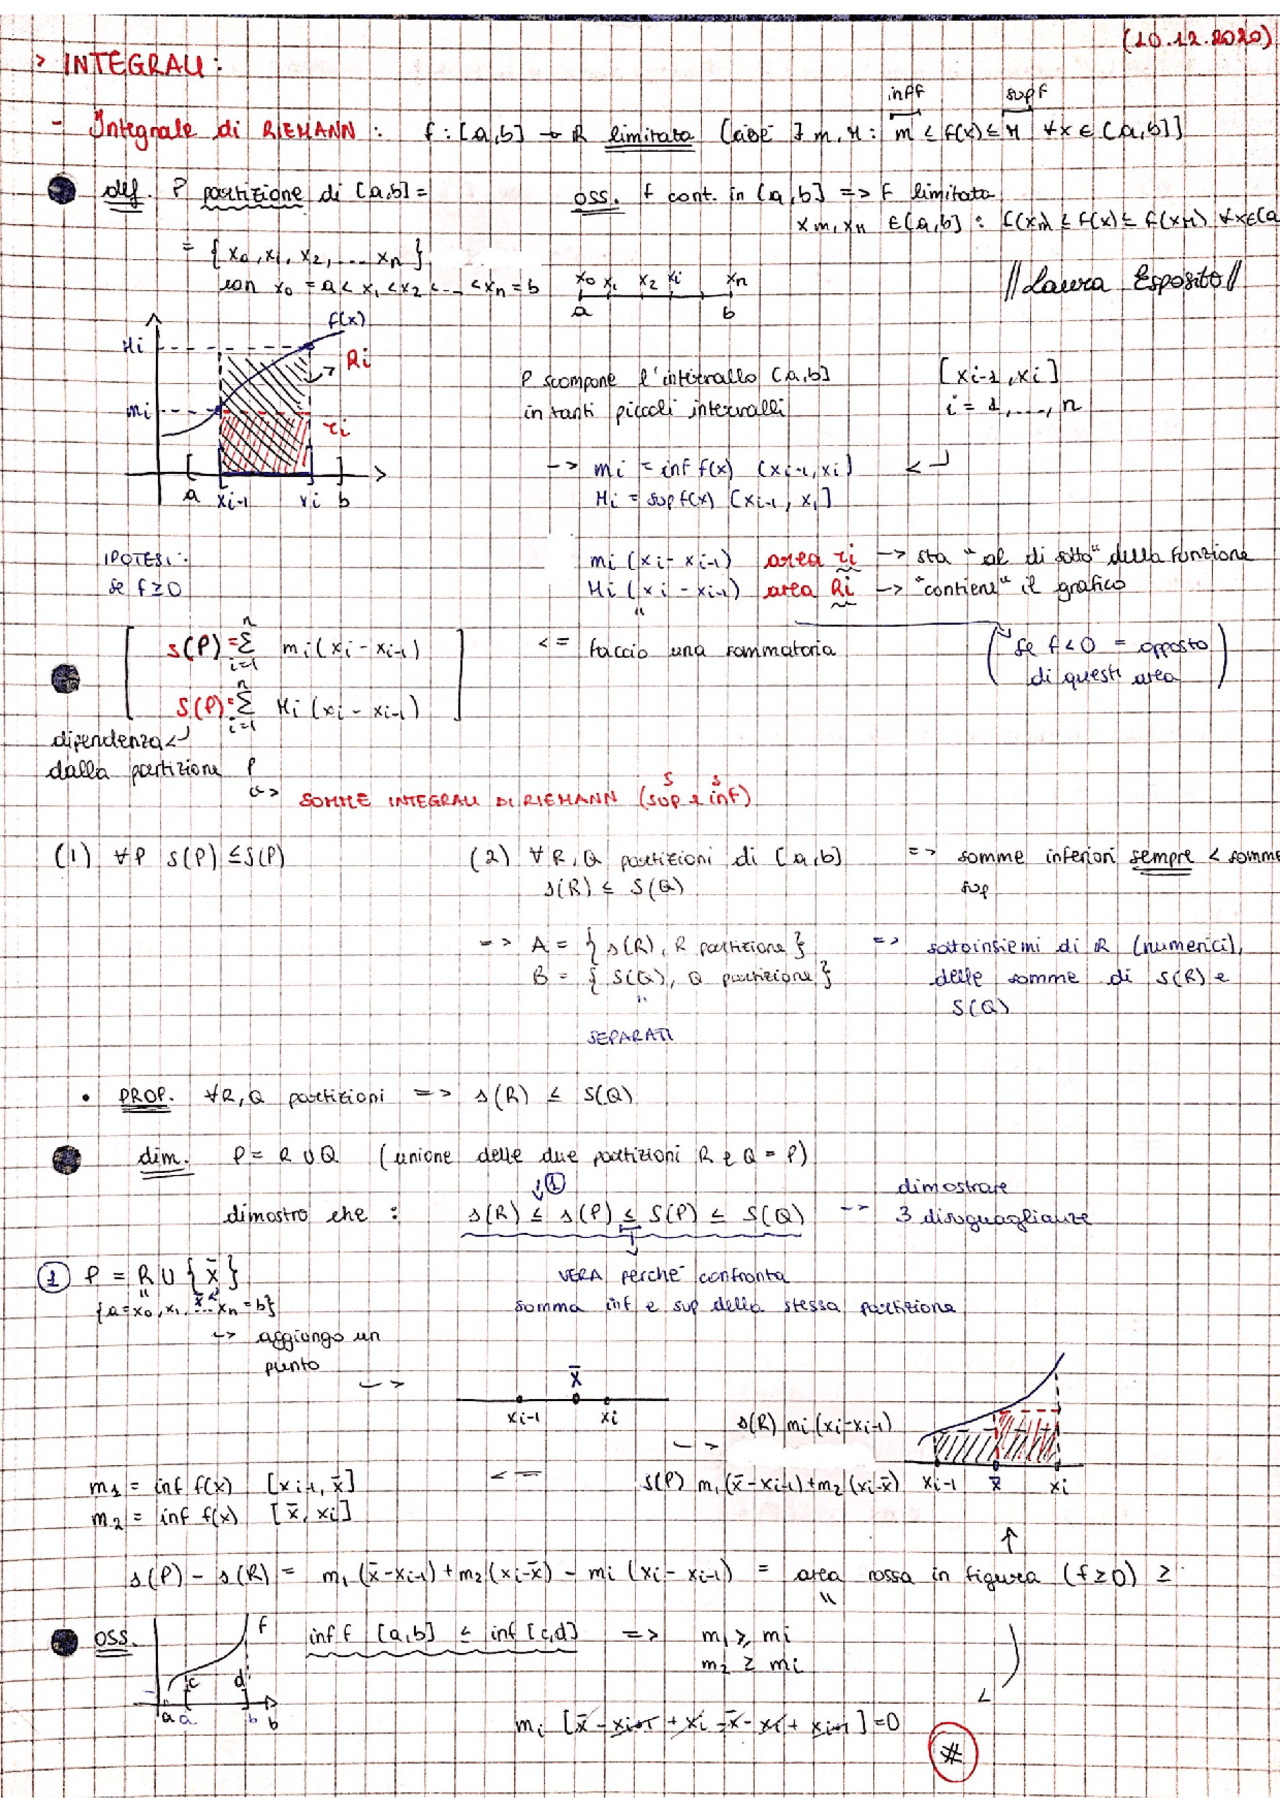 (10.12.2020)
> INTEGRALI:
inf f sup f
- Integrale di RIEMANN: f: [a,b] → R limitata [cioè ∃ m, M: m ≤ f(x) ≤ M ∀x ∈ [a,b]]
def. P partizione di [a,b] =
= {x0, x1, x2, ... xn}
con x0 = a < x1 < x2 < ... < xn = b
oss. f cont. in [a,b] => f limitata
xm, xM ∈ [a,b] : f(xm) ≤ f(x) ≤ f(xM) ∀x∈[a
x0 x1 x2 xi xn
a b
//Laura Esposito//
f(x)
Mi
Ri
mi
ri
a xi-1 xi b
P scompone l'intervallo [a,b]
in tanti piccoli intervalli
[xi-1, xi]
i = 1, ..., n
-> mi = inf f(x) [xi-1, xi] <
Mi = sup f(x) [xi-1, xi]
IPOTESI:
se f ≥ 0
mi (xi - xi-1) area ri -> sta "al di sotto" della funzione
Mi (xi - xi-1) area Ri -> "contiene" il grafico
s(P) = Σ i=1 n mi (xi - xi-1)
S(P) = Σ i=1 n Mi (xi - xi-1)
<= faccio una sommatoria
(se f < 0 = opposto
di questi area)
dipendenza
dalla partizione P
-> SOMME INTEGRALI DI RIEMANN (sup e inf)
S s
(1) ∀P s(P) ≤ S(P)
(2) ∀ R, Q partizioni di [a,b]
s(R) ≤ S(Q)
=> somme inferiori sempre < somme
sup
=> A = {s(R), R partizione}
B = {S(Q), Q partizione}
"
SEPARATI
=> sottoinsiemi di R (numerici),
delle somme di s(R) e
S(Q)
• PROP. ∀R, Q partizioni => s(R) ≤ S(Q)
dim. P = R ∪ Q (unione delle due partizioni R e Q = P)
①
dimostro che : s(R) ≤ s(P) ≤ S(P) ≤ S(Q) --> dimostrare
3 disuguaglianze
VERA perché confronta
somma inf e sup della stessa partizione
① P = R ∪ {x̄}
"
{a = x0, x1, x̄ ... xn = b}
-> aggiungo un
punto
->
x̄
xi-1 xi
-> s(R) mi (xi - xi-1)
s(P) m1 (x̄ - xi-1) + m2 (xi - x̄)
xi-1 x̄ xi
<=
m1 = inf f(x) [xi-1, x̄]
m2 = inf f(x) [x̄, xi]
s(P) - s(R) = m1 (x̄ - xi-1) + m2 (xi - x̄) - mi (xi - xi-1) = area rossa in figura (f ≥ 0) ≥
OSS.
f
c d
a a b b
inf f [a,b] ≤ inf [c,d] => m1 ≥ mi
m2 ≥ mi
mi [x̄ - xi-1 + xi - x̄ - xi + xi-1] = 0
#